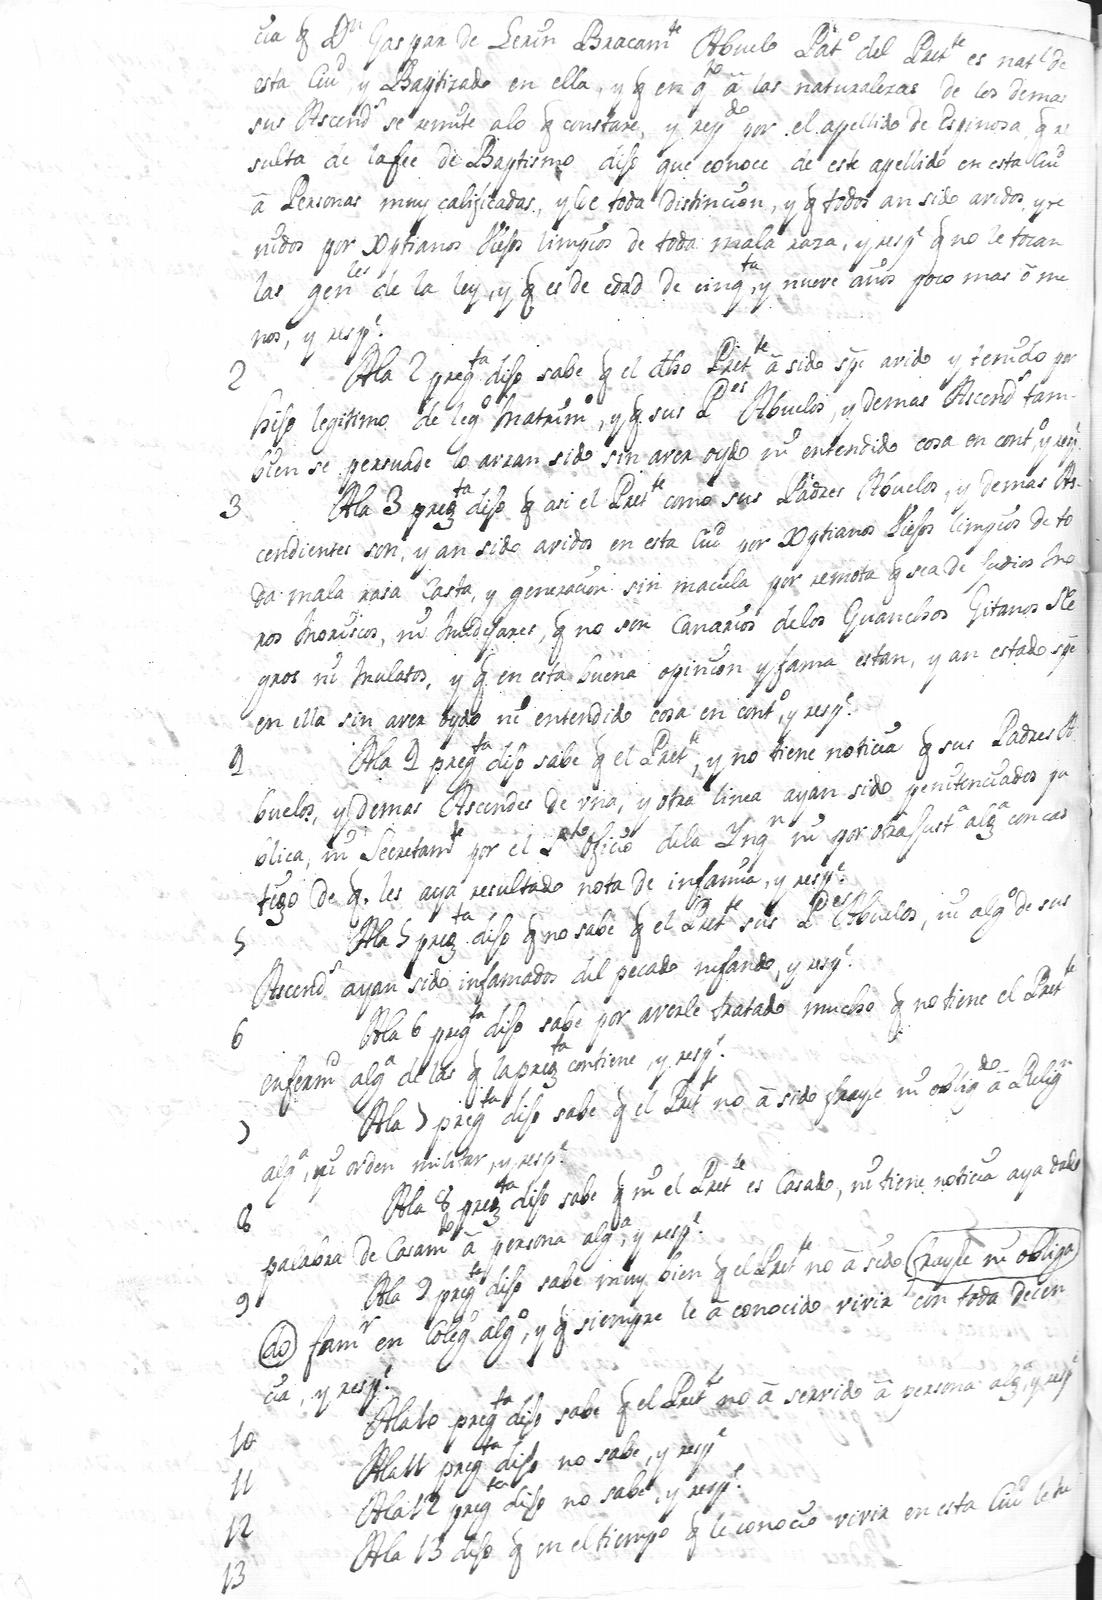 cia q̃ Dn Gaspar de Lerin Bracamte Abuelo Pato del Prette es natl de
esta Ciud y Baptizado en ella, y q̃ en qto â las naturalezas de los demas
sus Ascends se remite alo q̃ constare, y repdo por el apellido de Espinosa q̃ re
sulta de lafee de Baptismo diso que conoce de este apellido en esta Ciud
â Personas muy calificadas, y de toda distincion, y q̃ todos an sido avidos, y te
nidos por Xptianos Viejos limpios de toda mala raza, y respe q̃ no le tocan
las genles de la ley, y q̃ es de edad de cinqta y nueve años poco mas ô me
nos, y respe.
2 Ala 2 pregta diso sabe q̃ el dho Prette â sido spe avido y tenido por
hijo legitimo de lego Matrimo, y q̃ sus Pes Abuelos, y demas Ascends tam-
bien se persuade lo arran sido sin aver oydo ni entendido cosa en conto, y respe.
3 Ala 3 pregta diso q̃ asi el Prette como sus Padres Abuelos, y demas As-
cendientes son, y an sido avidos en esta Ciud por Xptianos Viejos limpios de to
da mala rasa Casta, y generacion sin macula por remota q̃ sea de Judios Mo
ros Moriscos, ni Mudejares, q̃ no son Canarios delos Guanchos Gitanos Ne
gros ni Mulatos, y q̃ en esta buena opinion y fama estan, y an estado spe
en ella sin aver oydo ni entendido cosa en conto, y respe.
4 Ala 4 pregta diso sabe q̃ el Prette, y no tiene noticia q̃ sus Padres A
buelos, y demas Ascendes de vna, y otra linea ayan sido penitenciados pu
blica, ni Secretamte por el Sto Oficio dela Ynqn ni por otra Justa alga con cas
tigo de q̃. les aya resultado nota de infamia, y respe.
5 Ala 5 pregta diso q̃ no sabe q̃ el Prette sus Pdes Abuelos, ni algo de sus
Ascends ayan sido infamados del pecado nefando, y respe.
6 Ala 6 pregta diso sabe por averle tratado mucho q̃ no tiene el Prette
enfermd alga de las q̃ la pregta contiene, y respe.
7 Ala 7 pregta diso sabe q̃ el Prette no â sido frayle ni obligdo â Relign
alga, ni orden militar, y respe.
8 Ala 8 pregta diso sabe q̃ ni el Prette es Casado, ni tiene noticia aya dado
palabra de Casamto â persona alga, y respe.
9 Ala 9 pregta diso sabe muy bien q̃ el Prette no â sido (frayle ni obliga
do) famr en Colego algo, y q̃ siempre le â conocido vivir con toda decen
cia, y respe.
10 Ala 10 pregta diso sabe q̃ el Prette no â servido â persona alga, y respe
11 Ala 11 pregta diso no sabe, y respe
12 Ala 12 pregta diso no sabe, y respe.
13 Ala 13 diso q̃ en el tiempo q̃ le conocio vivir en esta Ciud le tu